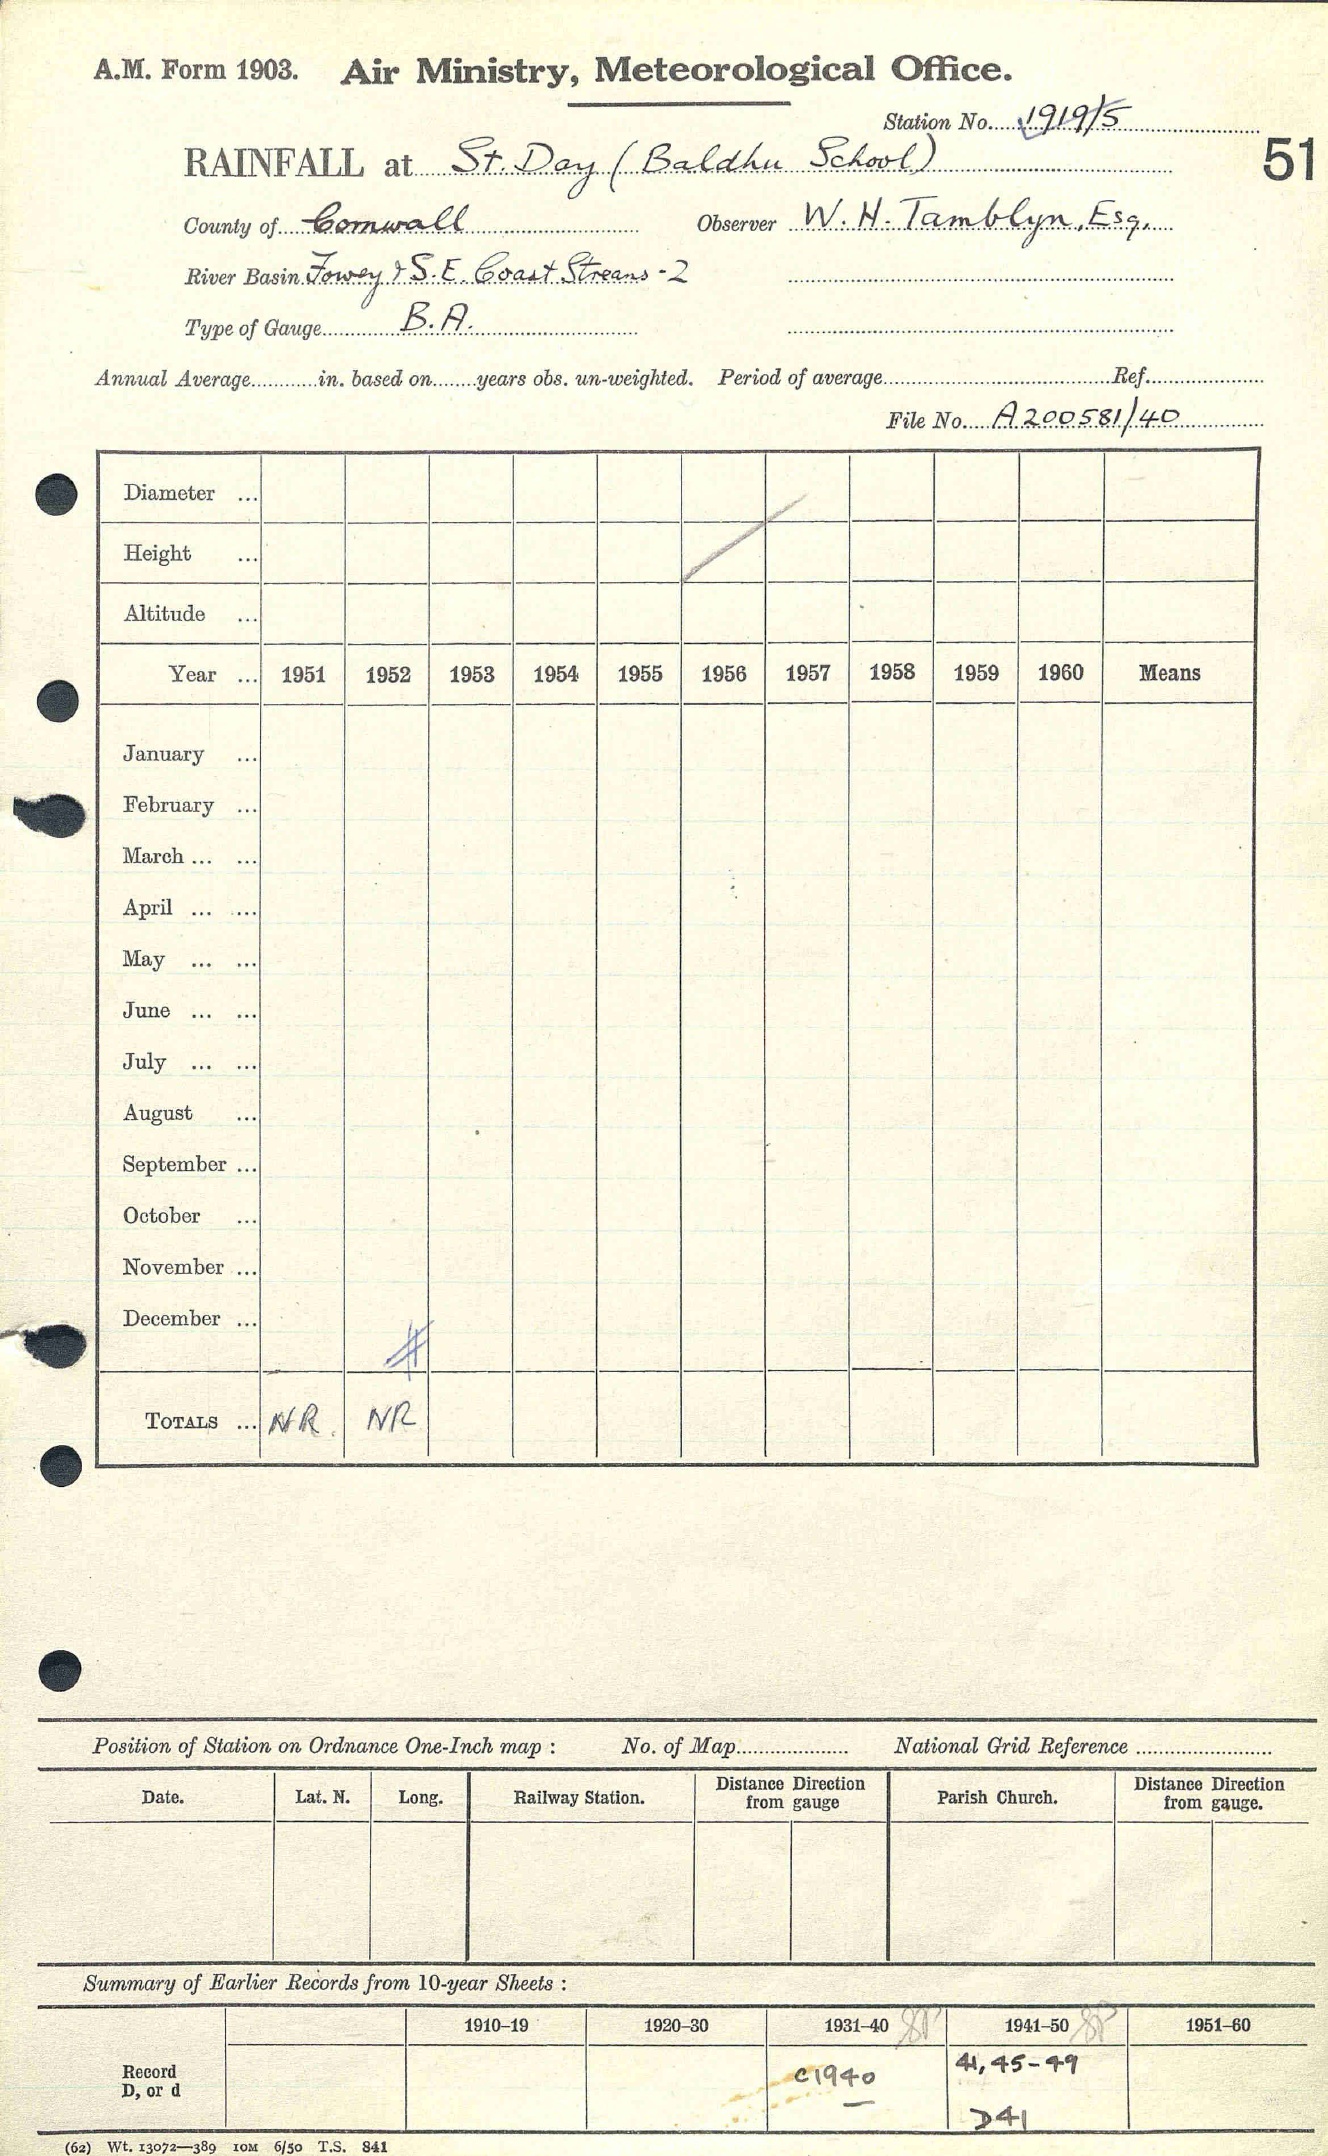 A.M. Form 1903. Air Ministry, Meteorological Office.
Station No. 1919/5
51
RAINFALL at St. Day (Baldhu School)
County of Cornwall Observer W. H. Tamblyn, Esq.
River Basin Fowey & S.E. Coast Streams - 2
Type of Gauge B.A.
Annual Average in. based on years obs. un-weighted. Period of average Ref.
File No. A200581/40
Diameter ...
Height ...
Altitude ...
Year ... 1951 1952 1953 1954 1955 1956 1957 1958 1959 1960 Means
January ...
February ...
March ... ...
April ... ...
May ... ...
June ... ...
July ... ...
August ...
September ...
October ...
November ...
December ...
TOTALS ... NR. NR
Position of Station on Ordnance One-Inch map : No. of Map National Grid Reference
Date. Lat. N. Long. Railway Station. Distance Direction from gauge Parish Church. Distance Direction from gauge.
Summary of Earlier Records from 10-year Sheets :
1910–19 1920–30 1931–40 1941–50 1951–60
Record D, or d c1940 41, 45-49
D41
(62) Wt. 13072—389 10M 6/50 T.S. 841